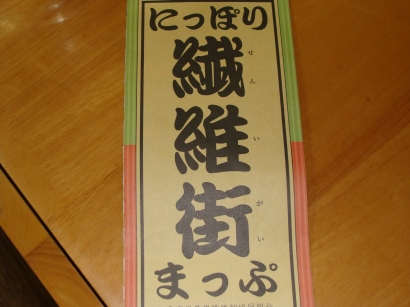 にっぽり
繊維街
せんいがい
まっぷ